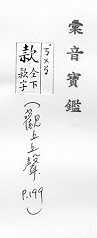 彙音寶鑑
款
仝下
款字
(觀上上聲
P.199)